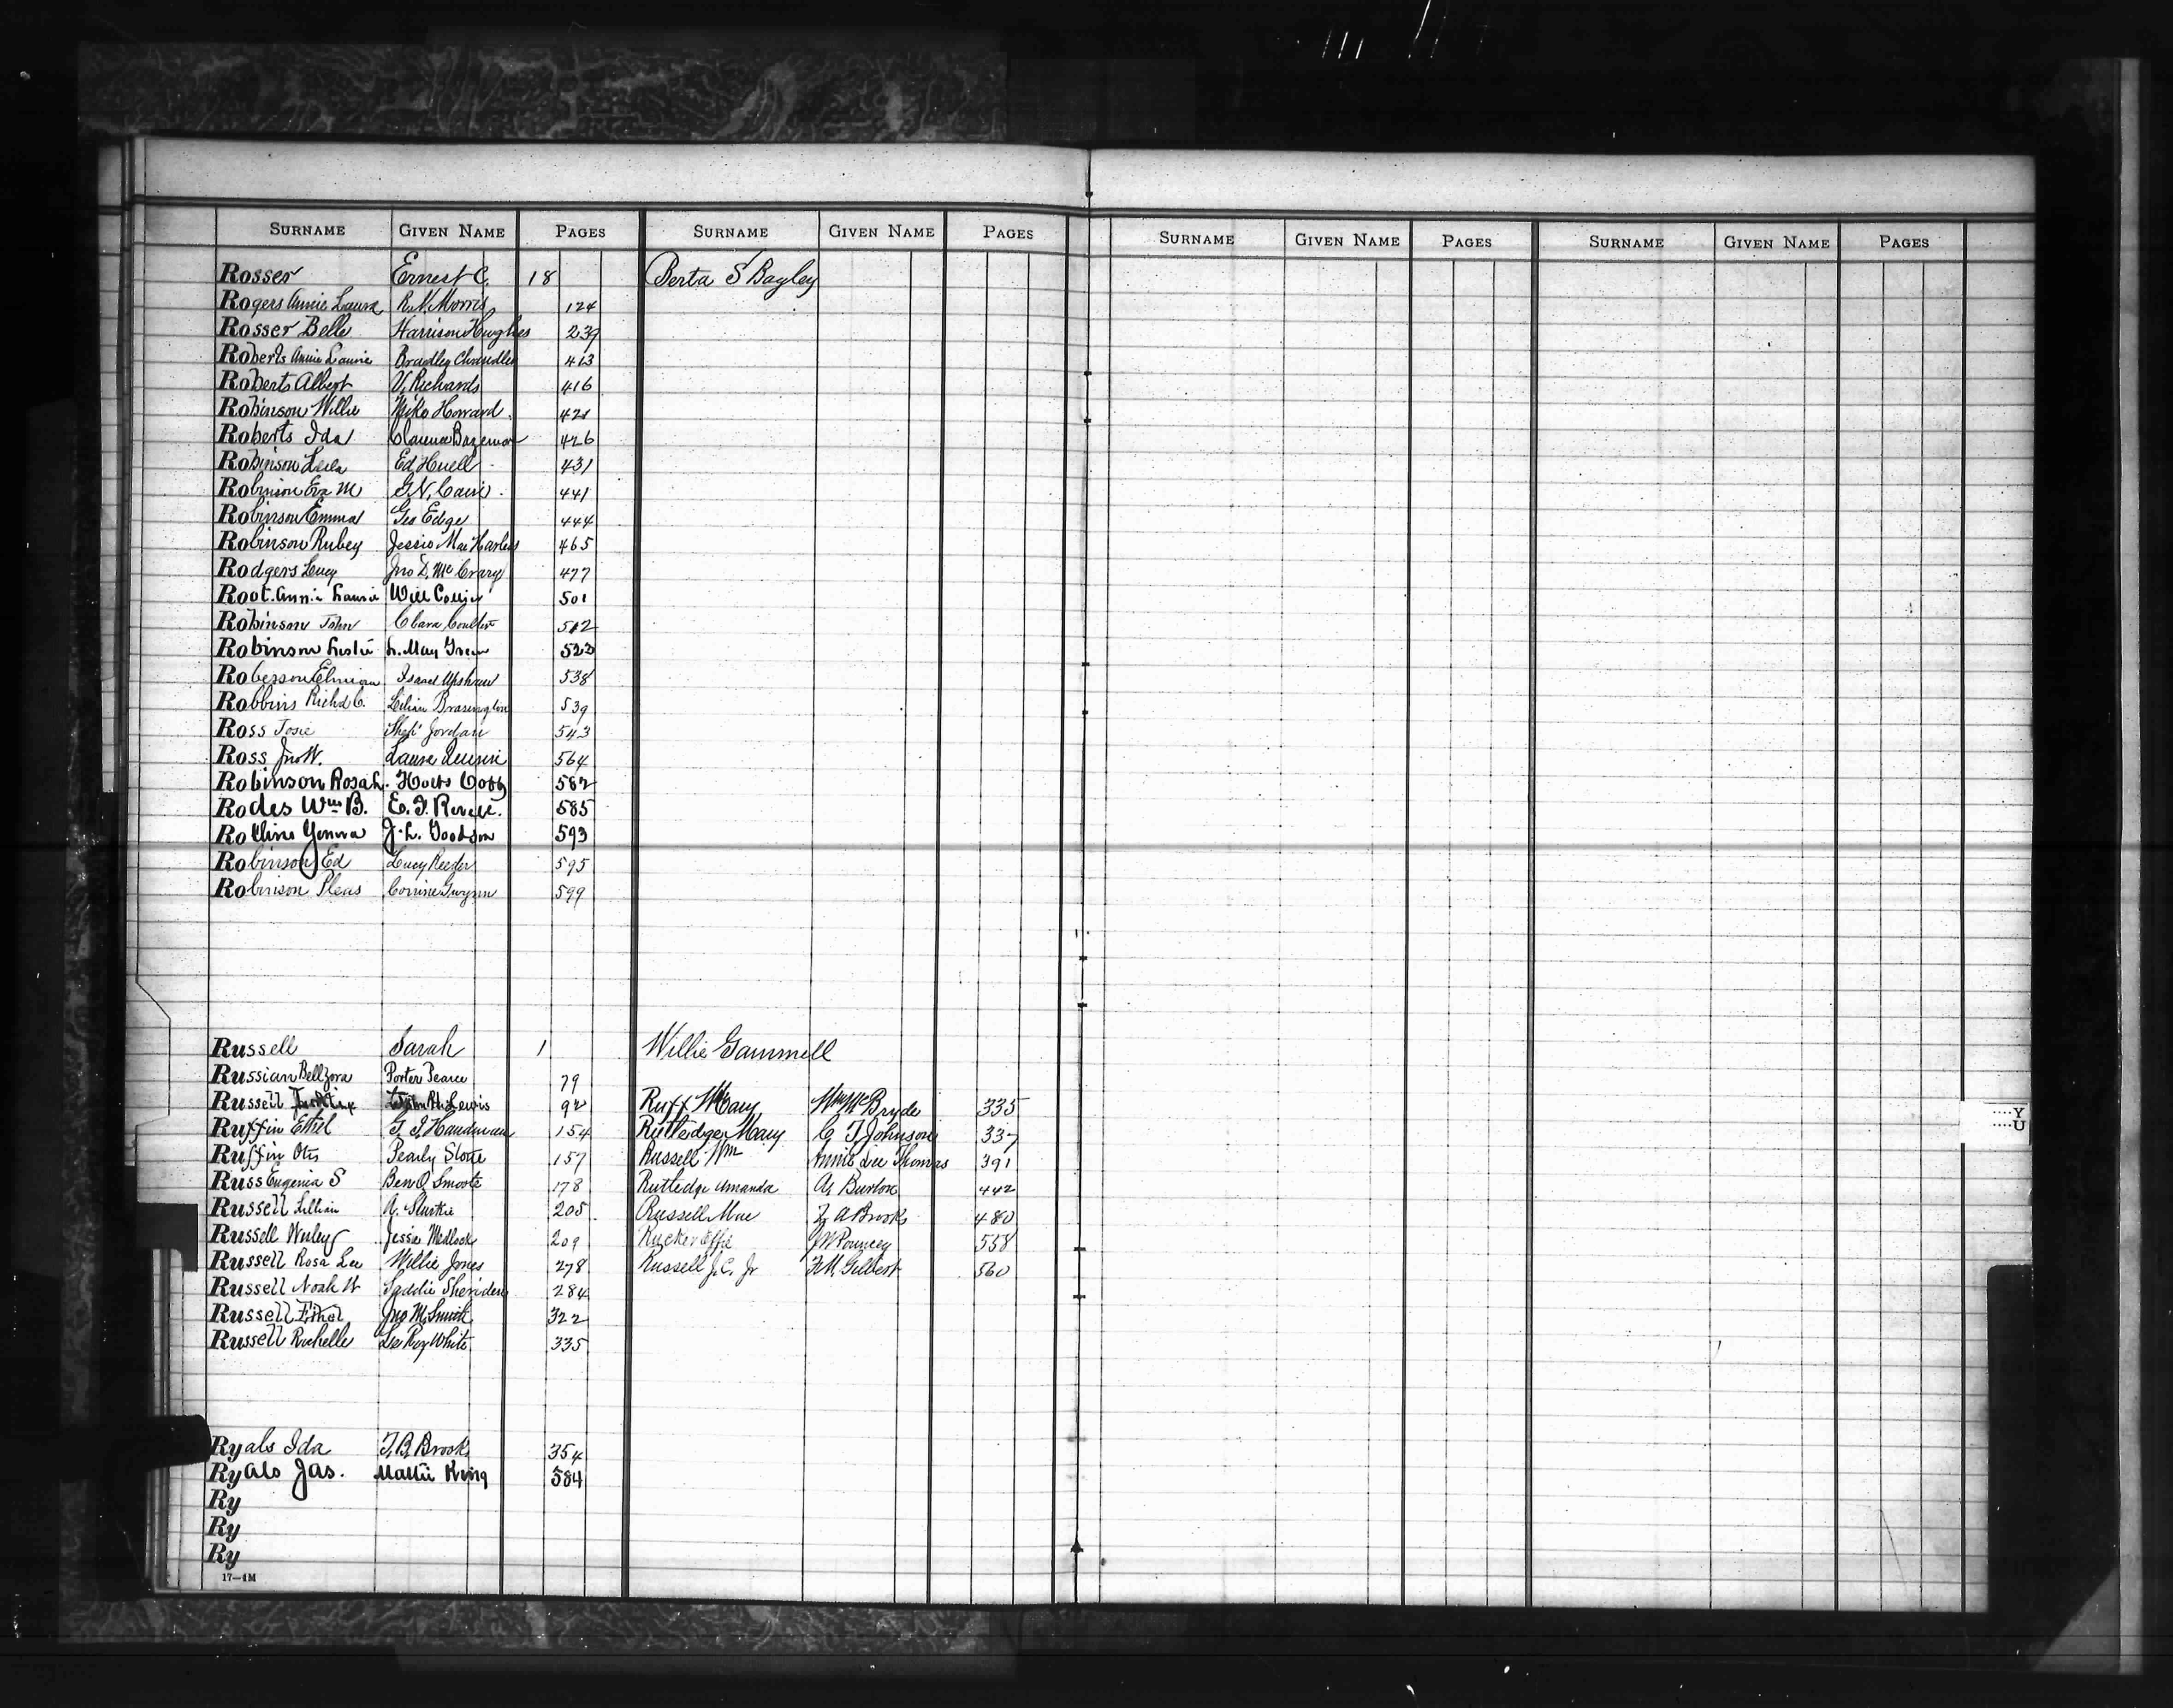 SURNAME GIVEN NAME PAGES SURNAME GIVEN NAME PAGES SURNAME GIVEN NAME PAGES SURNAME GIVEN NAME PAGES
Rosser Ernest C. 18 Berta S Bagley
Rogers Annie Laura R.N. Morris 124
Rosser Belle Harrison Hughes 239
Roberts Annie Laurie Bradley Chandler 413
Roberts Albert V. Richards 416
Robinson Willie Howard 421
Roberts Ida Clarence Bozeman 426
Robinson Lula Ed Huell 431
Robinson Eva M G.N. Cain 441
Robinson Emma Geo Edge 444
Robinson Rubey Jessie Mae 465
Rodgers Lucy Jno D. McCrary 477
Root. Annie Laurie Will 501
Robinson John Clara Coulter 512
Robinson Leslie L. May Green 523
Roberson Isaac Upshaw 538
Robbins Richd C. Lilian Brasington 539
Ross Josie Jordan 543
Ross Jno W. Laura 564
Robinson Rosa L. Cobb 582
Rodes Wm B. E. 585
Rollins Genora J. L. Goodson 593
Robinson Ed Lucy Reeder 595
Robinson Pleas Corrine Gwynn 599
Russell Sarah 1 Willie Gammell
Russian Bellzora Porter Pearce 79
Russell Lewis 92 Ruff Mary Wm McBryde 335
Ruffin Ethel 154 Rutledge Mary C T Johnson 337
Ruffin Otis Pearly Stone 157 Russell Wm Annie Lee Thomas 391
Russ Eugenia S Ben Q Smoote 178 Rutledge Amanda A. Burton 442
Russell Lillian A. 205 Russell Mae A Brooks 480
Russell Jessie Medlock 209 Rucker Effie Pouncey 558
Russell Rosa Lee Willie Jones 278 Russell J.C. Jr Gilbert 560
Russell Noah W Saddie Sheriden 284
Russell Ethel Jno M. Smith 322
Russell Rochelle Le Roy White 335
Ryals Ida T.B. Brooks 354
Ryals Jas. Mattie King 584
Ry
Ry
Ry
17—4M
Y
U